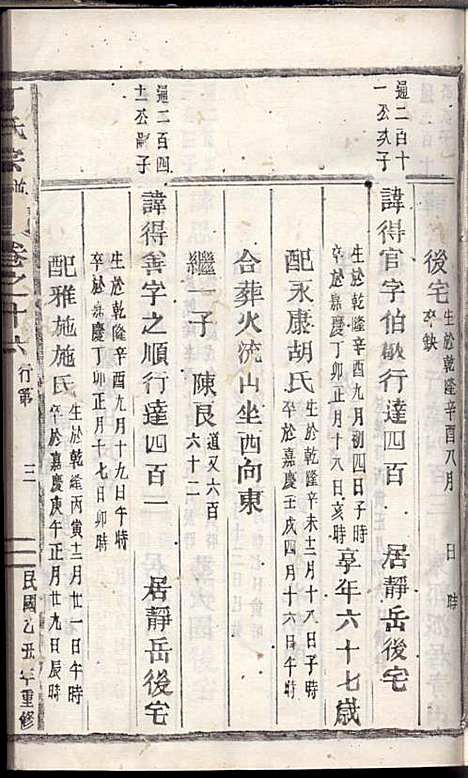 後宅
生於乾隆辛酉八月　日　時
卒缺
通二百十
一公次子
諱得官字伯敬行達四百　居靜岳後宅
生於乾隆辛酉九月初四日子時
卒於嘉慶丁卯正月十八日亥時
享年六十七歲
配永康胡氏
生於乾隆辛未十二月十八日子時
卒於嘉慶壬戌四月十六日子時
合葬火流山坐西向東
繼一子　陳良
道又六百
六十二
通二百四
十二公嗣子
諱得善字之順行達四百二　居靜岳後宅
生於乾隆辛酉九月十九日午時
卒於嘉慶丁卯正月十七日卯時
配雅施施氏
生於乾隆丙寅十二月廿一日午時
卒於嘉慶庚午正月廿九日辰時
丁氏宗譜
卷之十六
行第
三
民國乙丑年重修